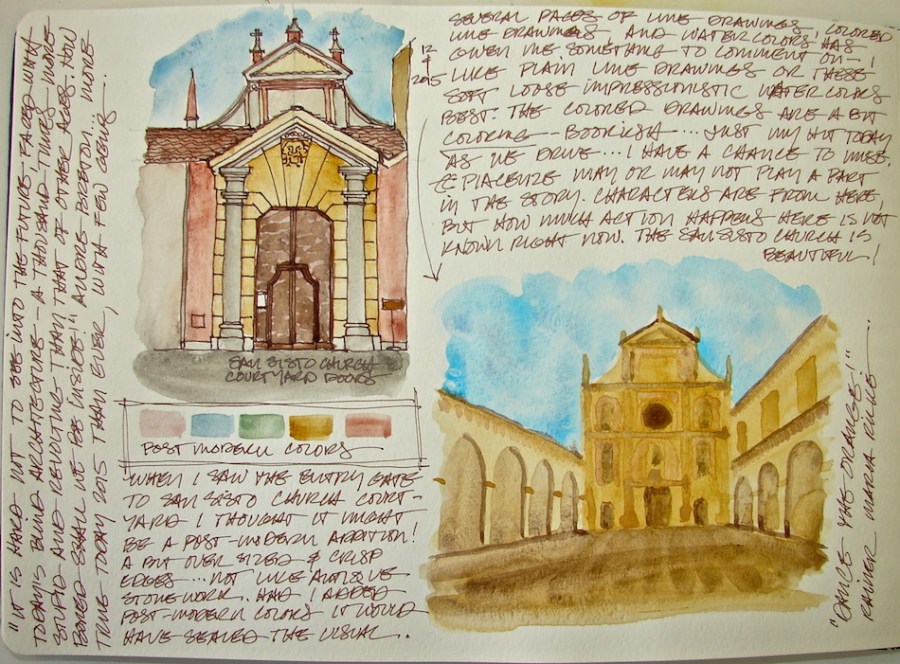 "IT IS HARD NOT TO SEE INTO THE FUTURE, FACED WITH
TODAY'S BLIND ARCHITECTURE – A THOUSAND TIMES MORE
STUPID AND REVOLTING THAN THAT OF OTHER AGES. HOW
BORED SHALL WE BE INSIDE!" ANDRE BRETON... MORE
TRUE TODAY 2015 THAN EVER, WITH A FEW
SAN SISTO CHURCH
COURTYARD DOORS
POST MODERN COLORS
WHEN I SAW THE ENTRY GATE
TO SAN SISTO CHURCH COURT-
YARD I THOUGHT IT MIGHT
BE A POST-MODERN ADDITION!
A BIT OVER SIZED & CRISP
EDGES... NOT LIKE ANTIQUE
STONEWORK. HAD I ADDED
POST-MODERN COLORS IT WOULD
HAVE SEALED THE VISUAL..
12
8
2015
SEVERAL PAGES OF LINE DRAWINGS, COLORED
LINE DRAWINGS, AND WATERCOLORS! HAS
GIVEN ME SOMETHING TO COMMENT ON – I
LIKE PLAIN LINE DRAWINGS OR THESE
SOFT LOOSE IMPRESSIONISTIC WATERCOLORS
BEST. THE COLORED DRAWINGS ARE A BIT
COLORING-BOOKISH... JUST MY HIT TODAY
AS WE DRIVE... I HAVE A CHANCE TO MUSE.
PIACENZE MAY OR MAY NOT PLAY A PART
IN THE STORY. CHARACTERS ARE FROM HERE,
BUT HOW MUCH ACTION HAPPENS HERE IS NOT
KNOWN RIGHT NOW. THE SAN SISTO CHURCH IS
BEAUTIFUL!
"DANCE THE ORANGE!"
RAINER MARIA RILKE